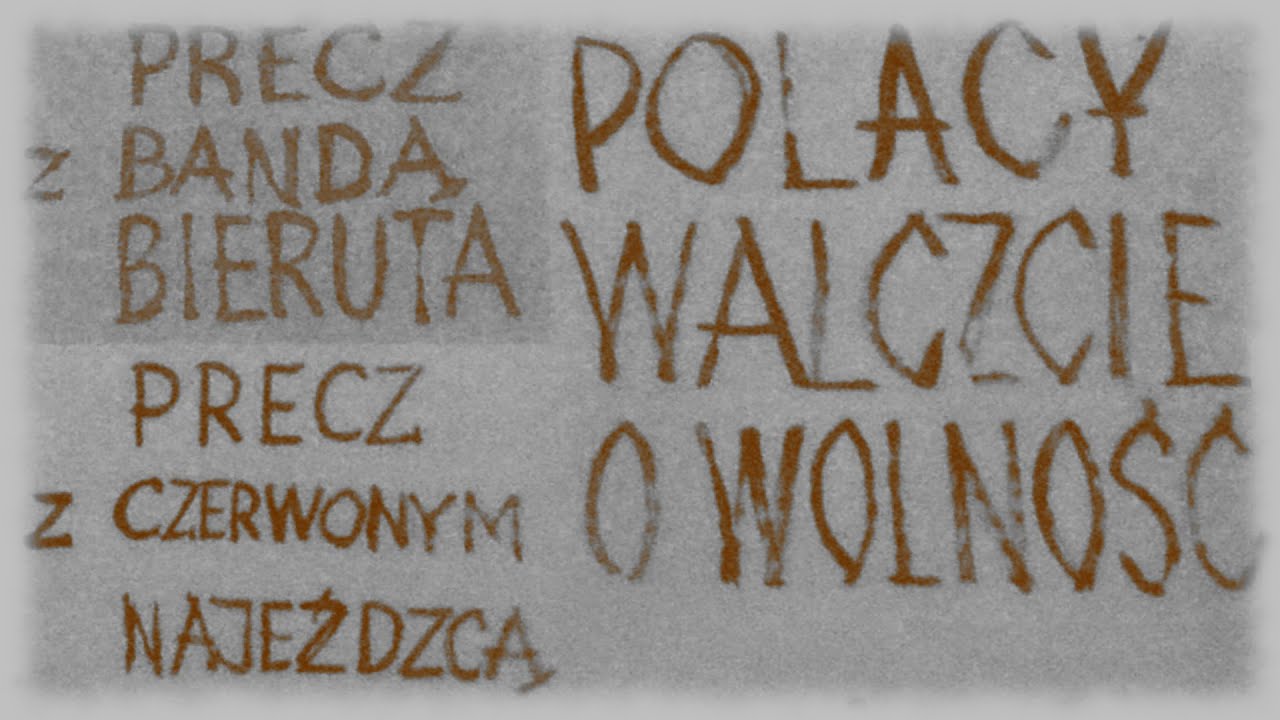 PRECZ
z BANDĄ
BIERUTA
PRECZ
z CZERWONYM
NAJEŹDZCĄ
POLACY
WALCZCIE
O WOLNOŚĆ